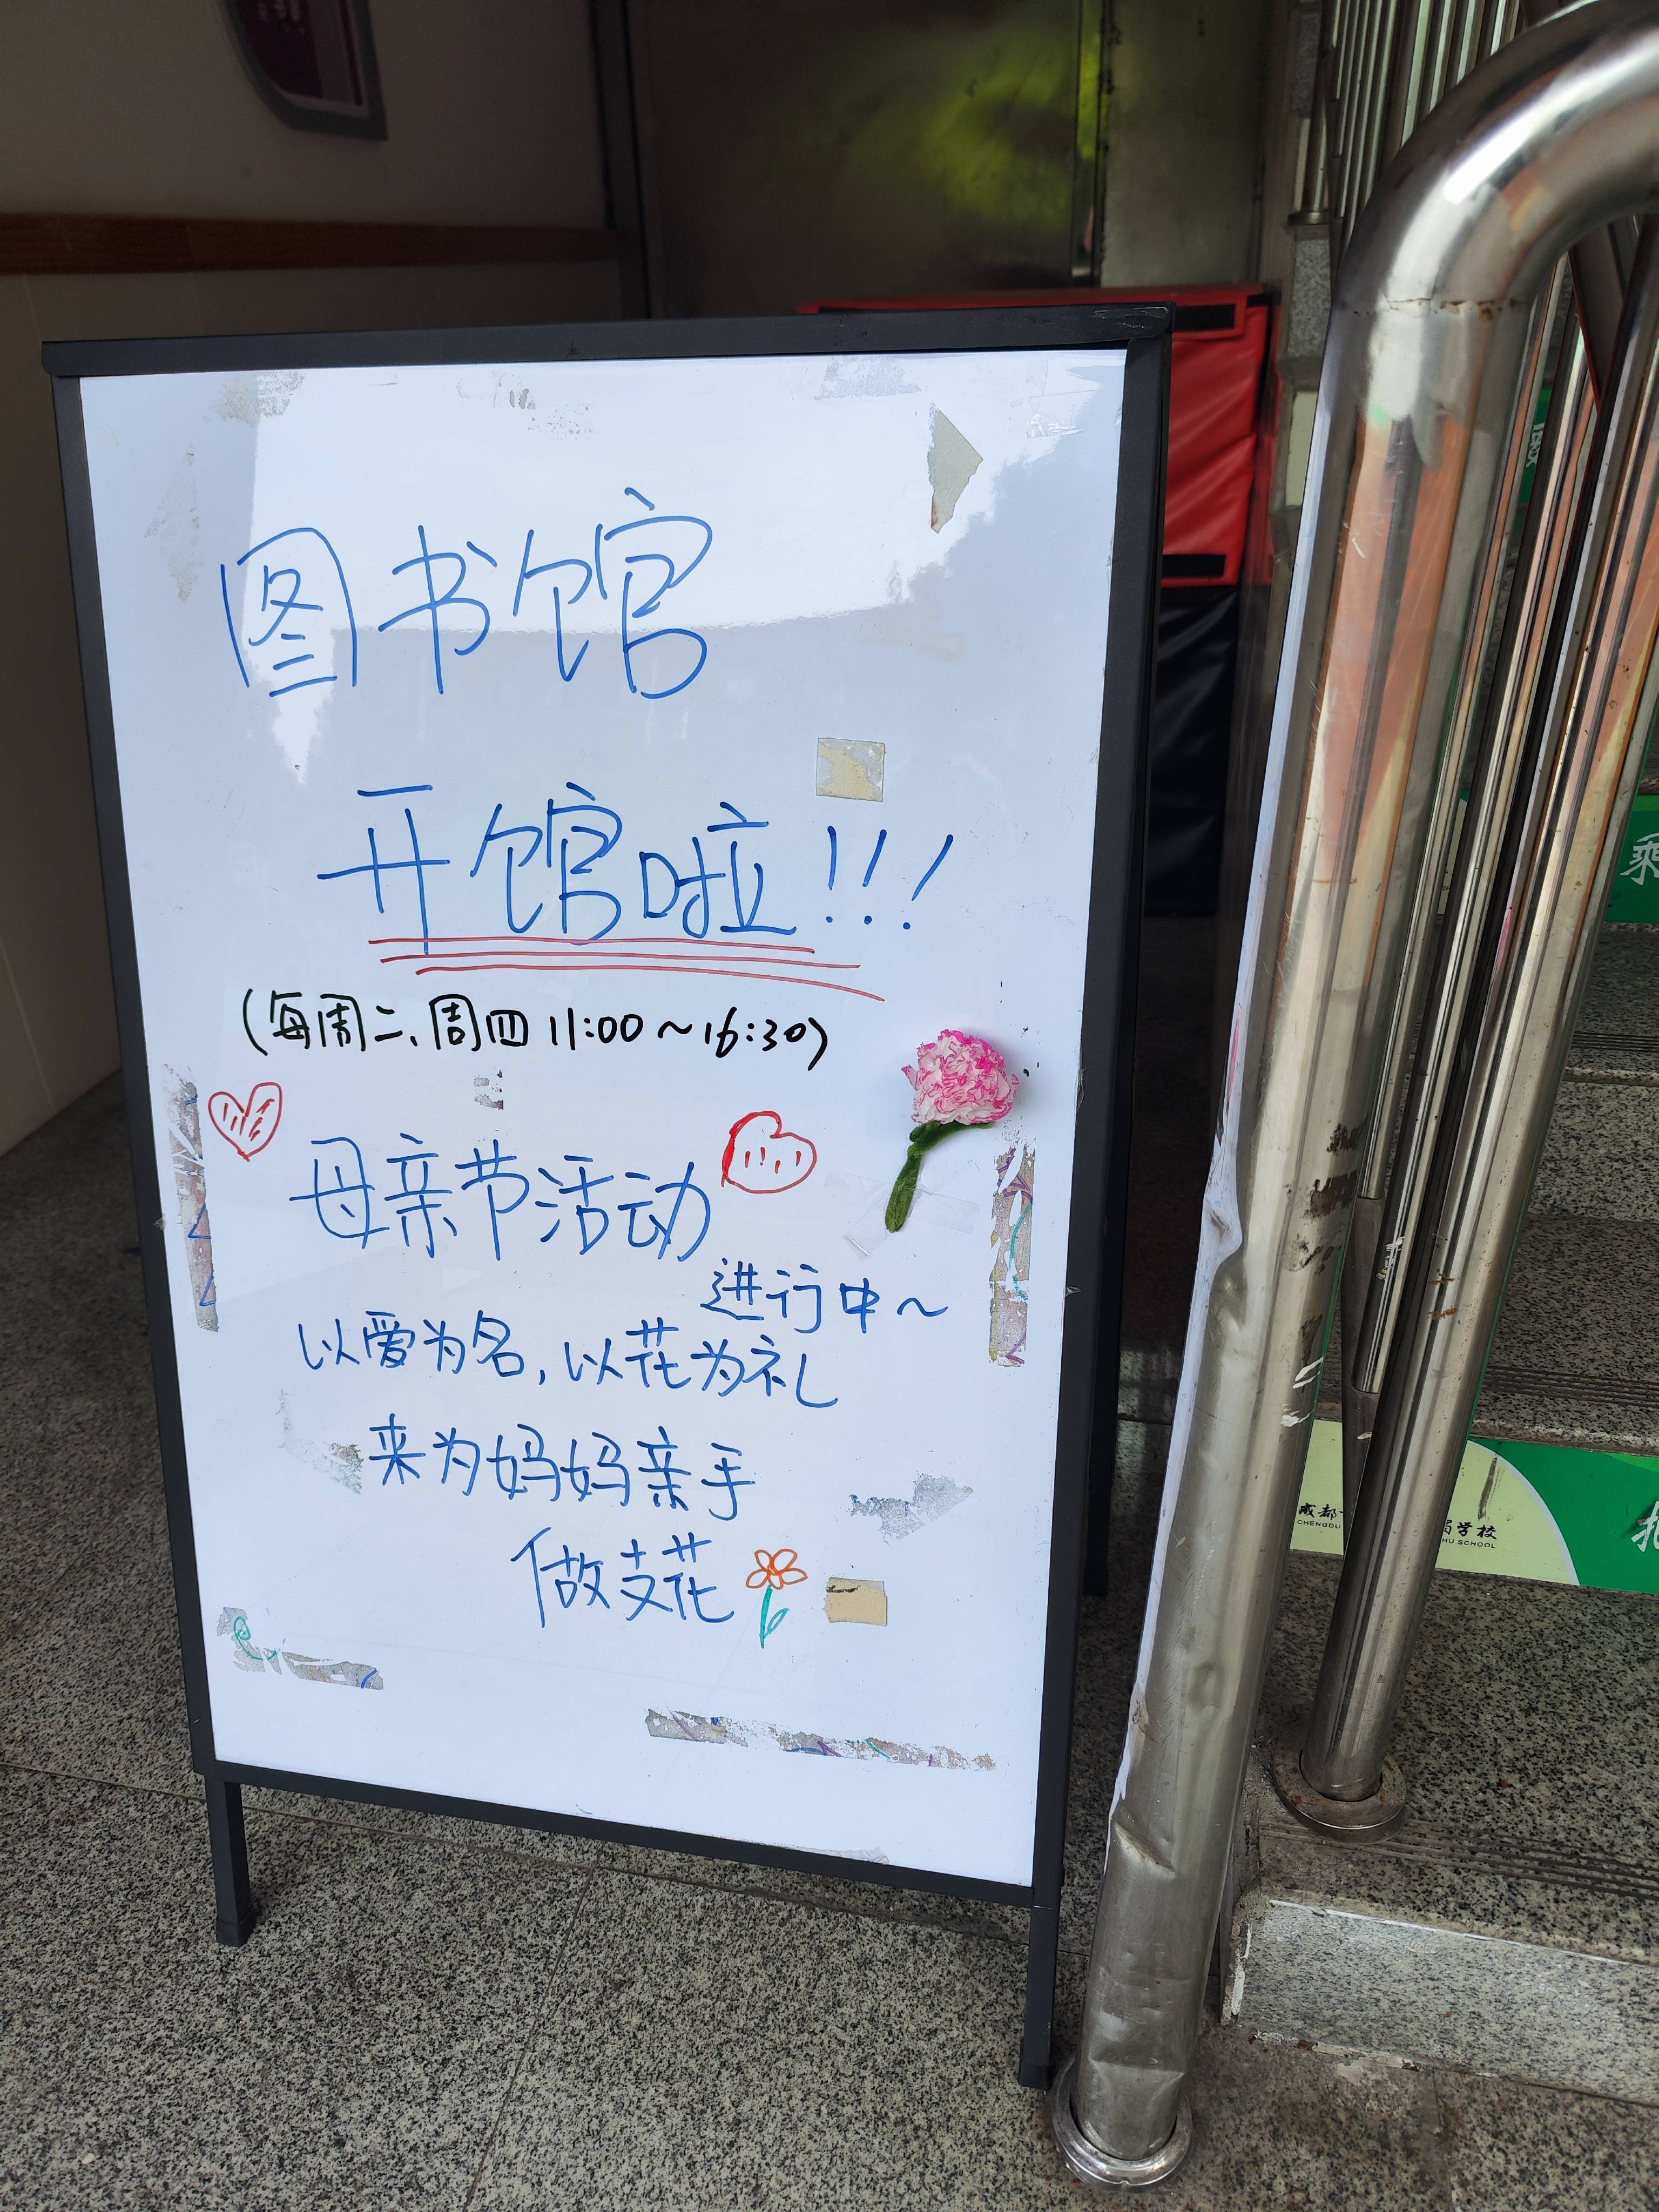 图书馆
开馆啦!!!
(每周二、周四 11:00~16:30)
母亲节活动
进行中~
以爱为名,以花为礼
来为妈妈亲手
做支花
乘
成都
CHENGDU
学校
HU SCHOOL